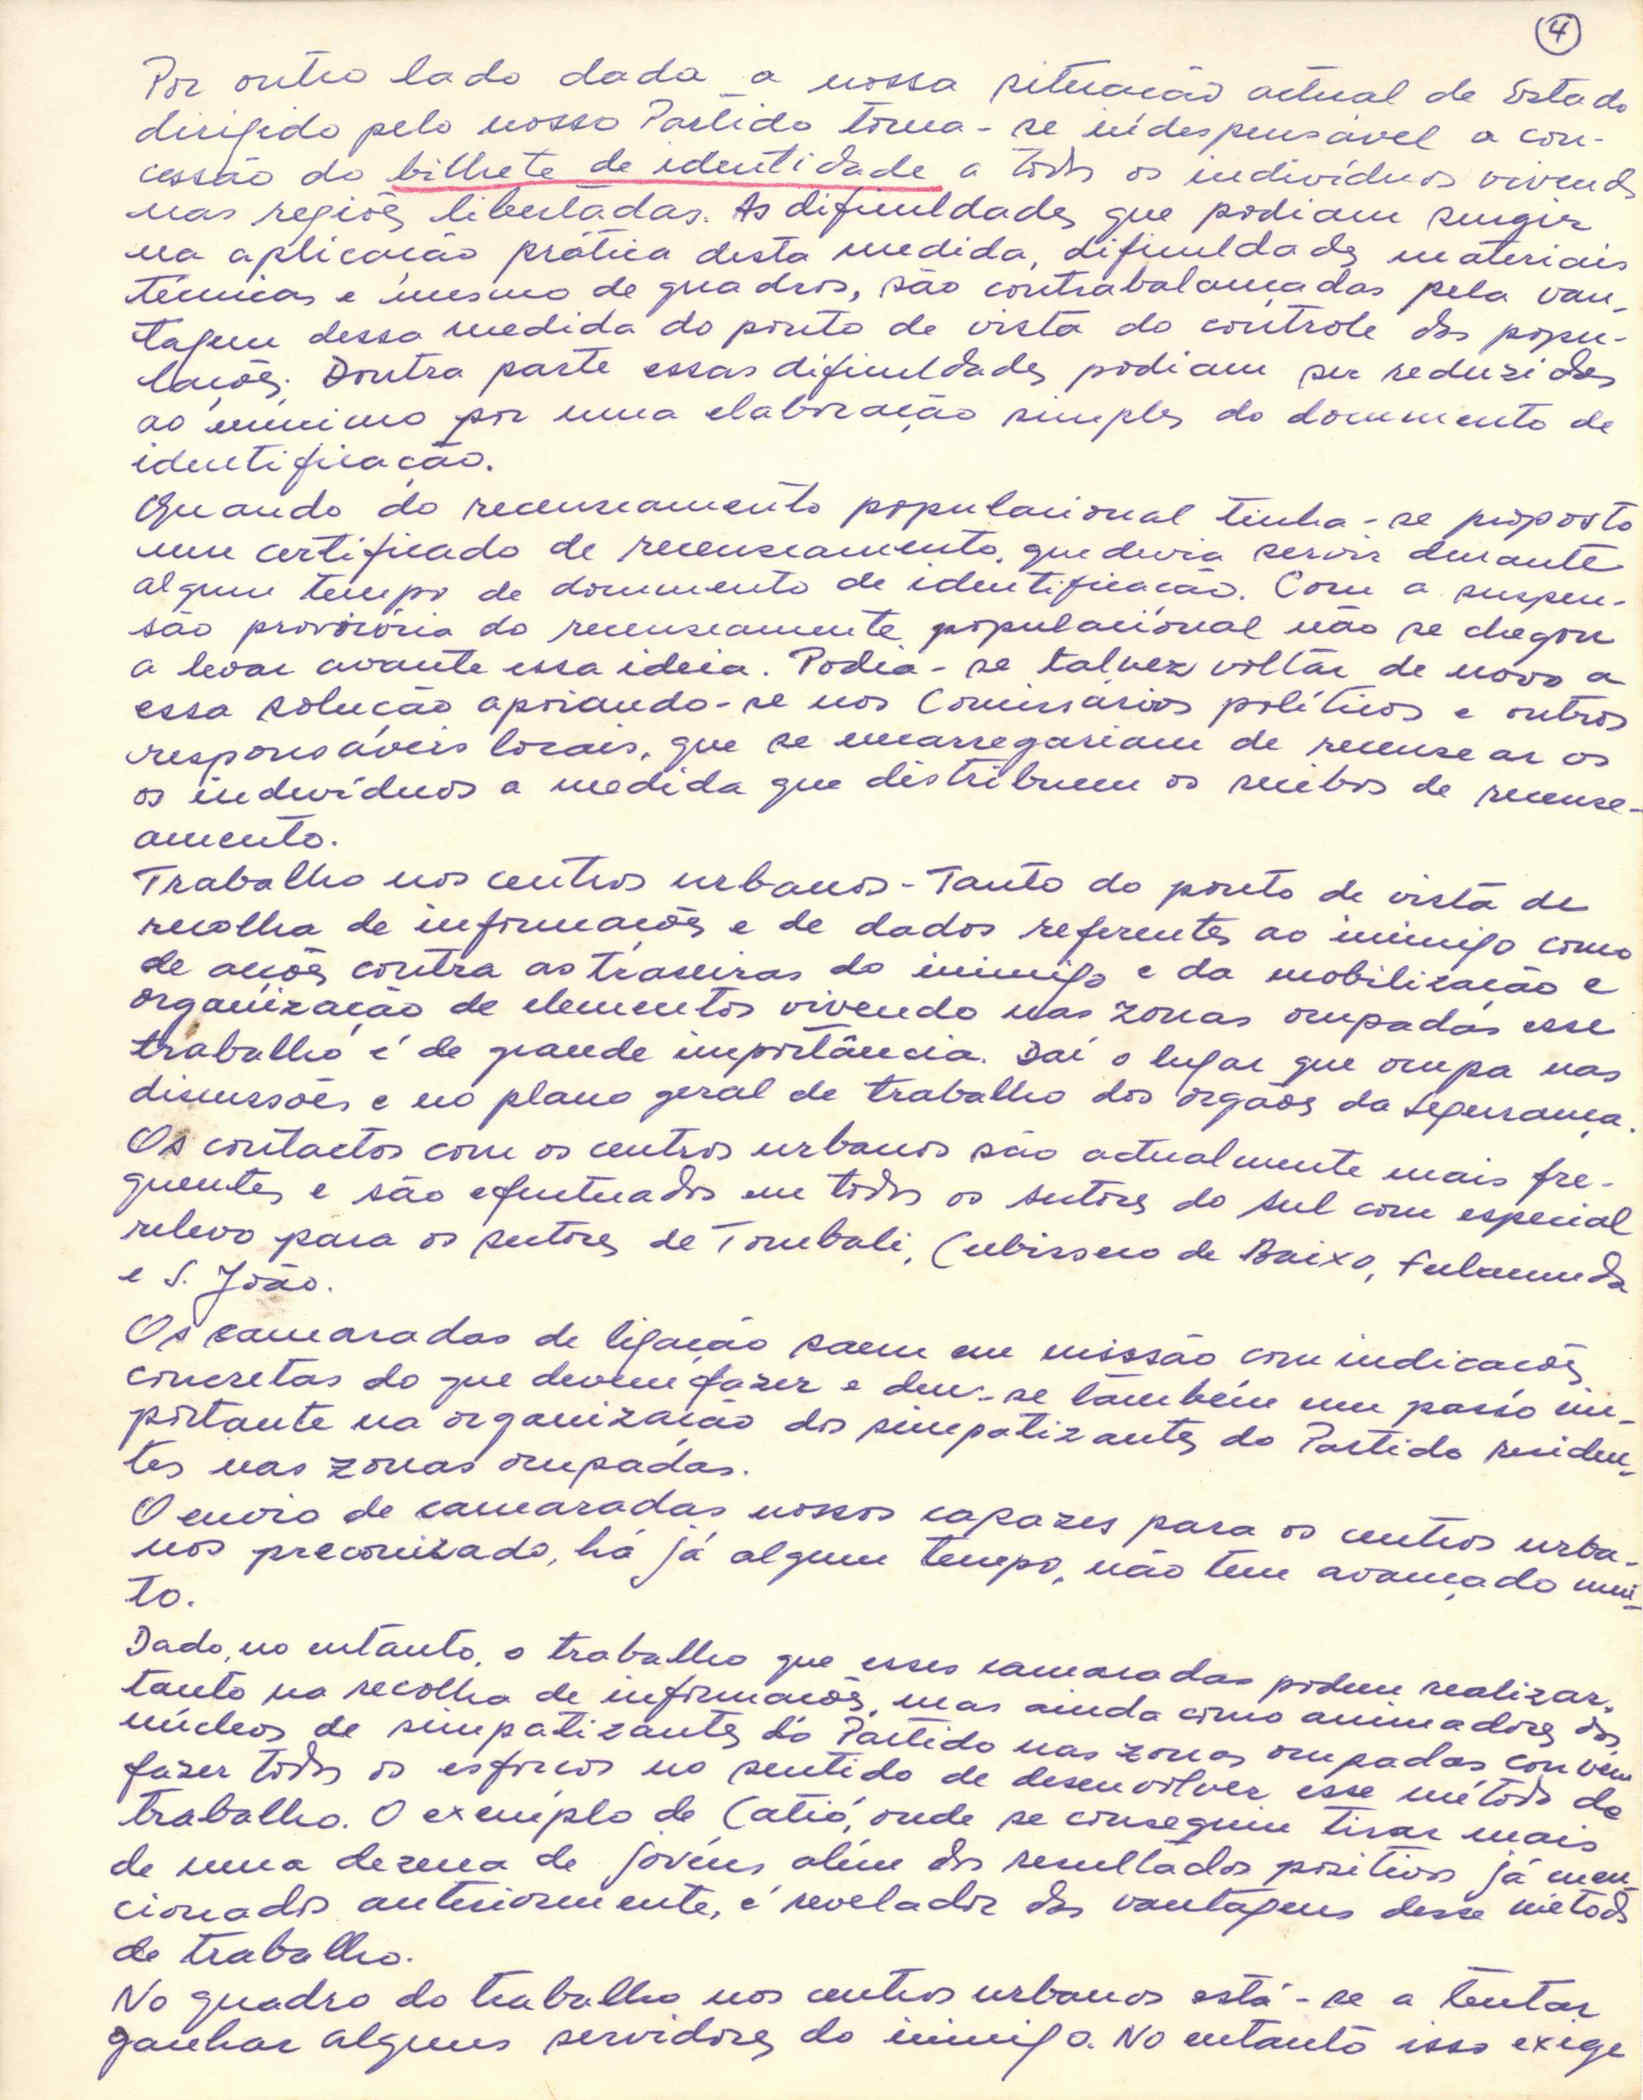 4
Por outro lado dada a nossa situação actual de Estado
dirigido pelo nosso Partido torna-se indespensável a con-
cessão do bilhete de identidade a todos os indivíduos vivendo
nas regiões libertadas. As dificuldades que podiam surgir
na aplicação prática desta medida, dificuldades materiais
técnicas e mesmo de quadros, são contrabalançadas pela van-
tagem dessa medida do ponto de vista do controle das popu-
lações. Doutra parte essas dificuldades podiam ser reduzidas
ao minimo por uma elaboração simples do documento de
identificação.
Quando do recenseamento populacional tinha-se proposto
um certificado de recenseamento, que devia servir durante
algum tempo de documento de identificação. Com a suspen-
são provisória do recenseamento populacional não se chegou
a levar avante essa ideia. Podia-se talvez voltar de novo a
essa solução apoiando-se nos Comissários políticos e outros
responsáveis locais, que se encarregariam de recensear os
os indivíduos a medida que distribuem os recibos de recense-
amento.
Trabalho nos centros urbanos - Tanto do ponto de vista de
recolha de informações e de dados referentes ao inimigo como
de acções contra as traseiras do inimigo e da mobilização e
organização de elementos vivendo nas zonas ocupadas esse
trabalho é de grande importância. Daí o lugar que ocupa nas
discussões e no plano geral de trabalho dos orgãos da Segurança.
Os contactos com os centros urbanos são actualmente mais fre-
quentes e são efectuados em todos os sectores do sul com especial
relevo para os sectores de Tombali, Cubisseco de Baixo, Fulacunda
e S. João.
Os camaradas de ligação saem em missão com indicações
concretas do que devem fazer e deu-se também um passo im-
portante na organização dos simpatizantes do Partido residen-
tes nas zonas ocupadas.
O envio de camaradas nossos capazes para os centros urba-
nos preconizado, há já algum tempo, não tem avançado mui-
to.
Dado, no entanto, o trabalho que esses camaradas podem realizar,
tanto na recolha de informações, mas ainda como animadores dos
núcleos de simpatizantes do Partido nas zonas ocupadas convém
fazer todos os esforços no sentido de desenvolver esse método de
trabalho. O exemplo de Catió, onde se conseguiu tirar mais
de uma dezena de jovens além dos resultados positivos já men-
cionados anteriormente, é revelador das vantagens desse método
de trabalho.
No quadro do trabalho nos centros urbanos está-se a tentar
ganhar alguns servidores do inimigo. No entanto isso exige